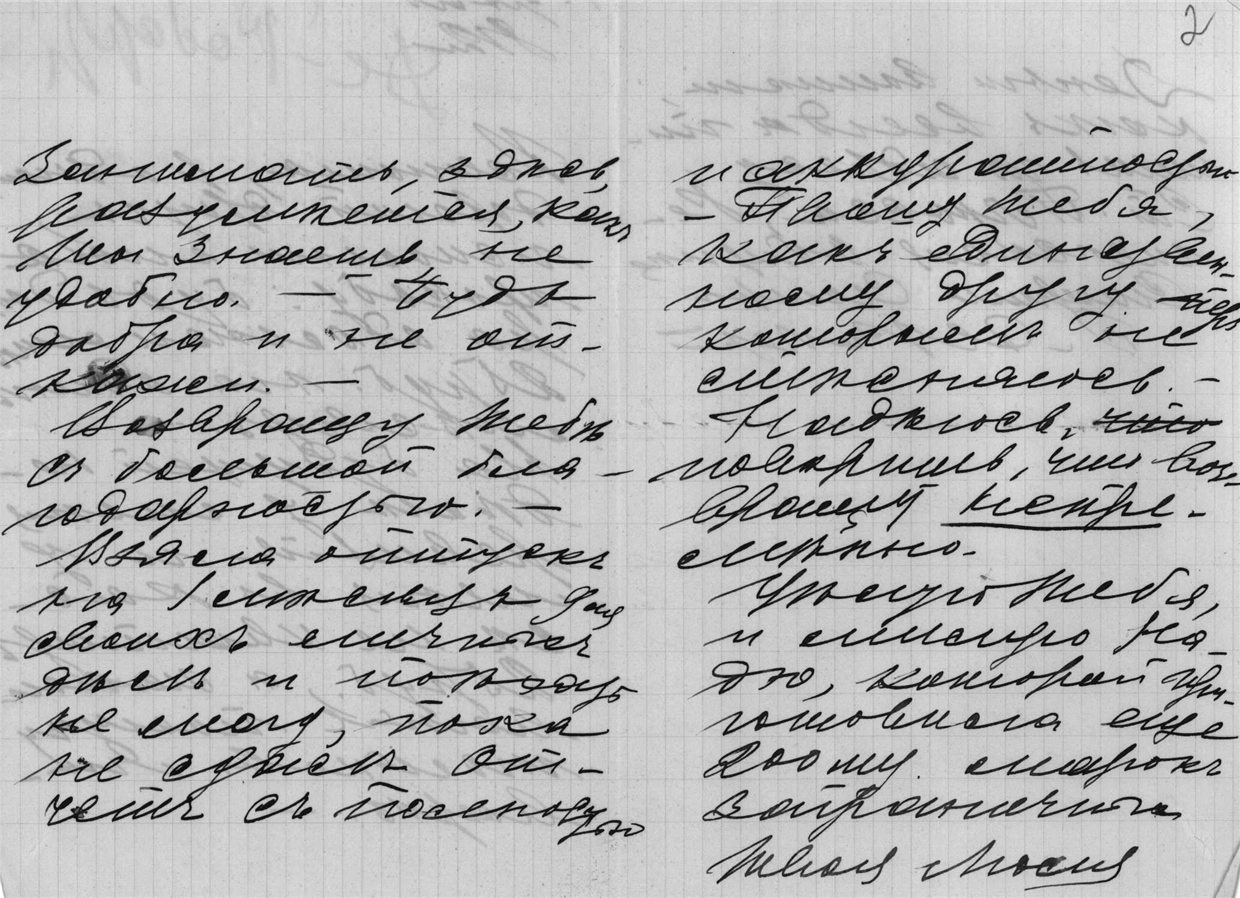 2
Занимать, здѣсь,
разумѣется, какъ
ты знаешь не
удобно. — Будь
добра и не от-
кажи. —
Возвращу тебѣ
съ большой бла-
годарностью. —
Взяла отпускъ
на 1 мѣсяцъ для
своихъ личныхъ
дѣлъ и поѣхать
не могу, пока
не сдамъ от-
четъ съ полнотою
и аккуратностью
— Прошу тебя,
какъ единствен-
ному другу
которымъ не
стѣсняюсь. —
Надѣюсь, что
повѣришь, что воз-
вращу непре-
мѣнно.
Цѣлую тебя,
и милую На-
дю, которой при-
готовила еще
200 шт. марокъ
заграничныхъ
Твоя Люся